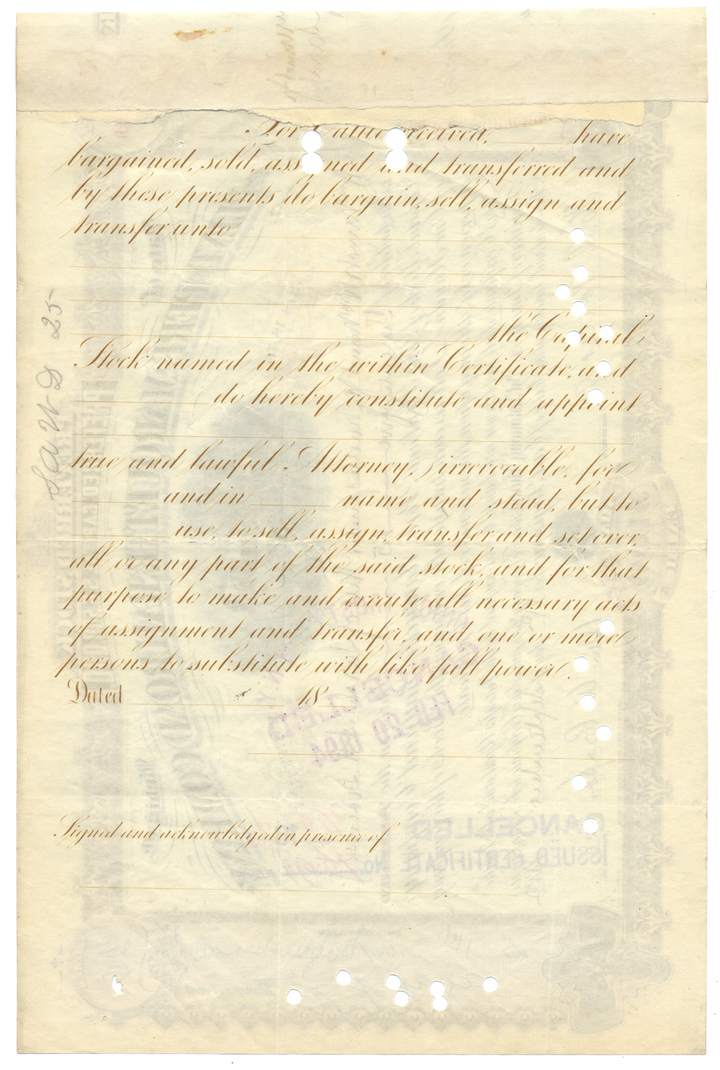 For Value received, have
bargained, sold, assigned and transferred and
by these presents do bargain, sell, assign and
transfer unto
the Capital
Stock named in the within Certificate, and
do hereby constitute and appoint
true and lawful Attorney, irrevocable, for
and in name and stead, but to
use, to sell, assign, transfer and set over,
all or any part of the said stock, and for that
purpose to make and execute all necessary acts
of assignment and transfer, and one or more
persons to substitute with like full power.
Dated 18
Signed and acknowledged in presence of
CANCELLED
FEB 20 1894
CANCELLED
ISSUED CERTIFICATE No.
25